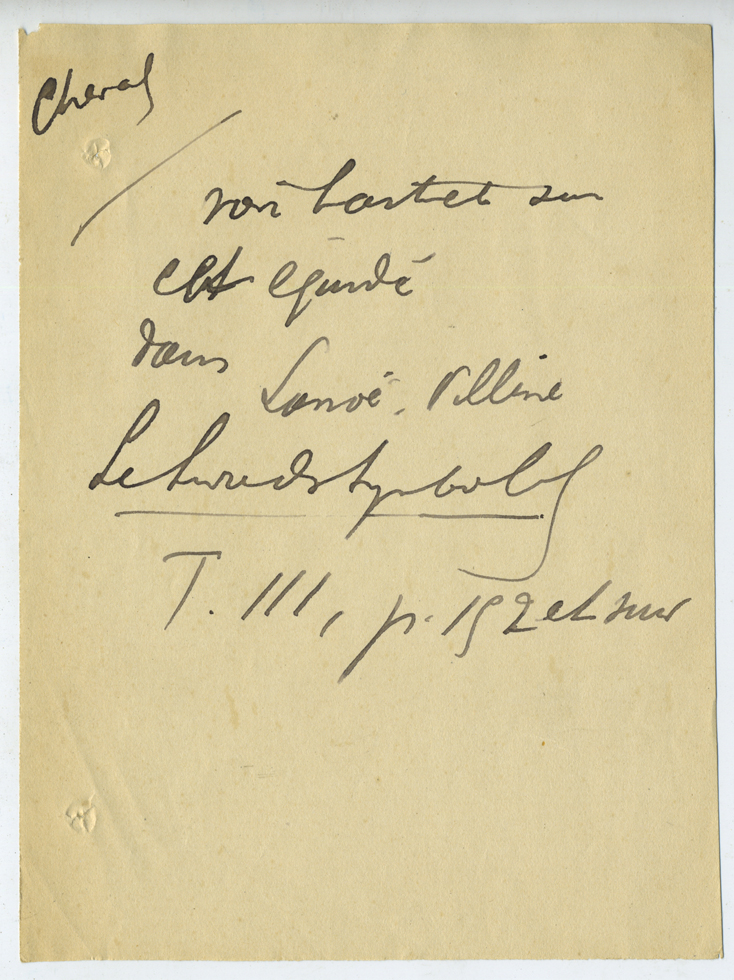 Cheval
voir l'article sur
cet équidé
dans Lanoë-Villène
Le Livre des Symboles
T. III, p. et suiv